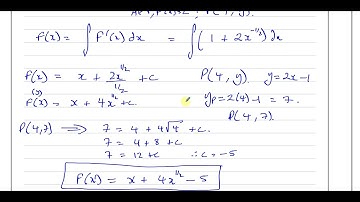 f(x) = ∫ f'(x) dx = ∫(1 + 2x^{-1/2}) dx
f(x) = x + 2x^{1/2}/(1/2) + c P(4, y). y=2x-1
(y)
f(x) = x + 4x^{1/2} + c. yp=2(4)-1 = 7.
P(4,7).
P(4,7) ⟹ 7 = 4 + 4√4 + c.
7 = 4 + 8 + c
7 = 12 + c ∴ c = -5
f(x) = x + 4x^{1/2} - 5